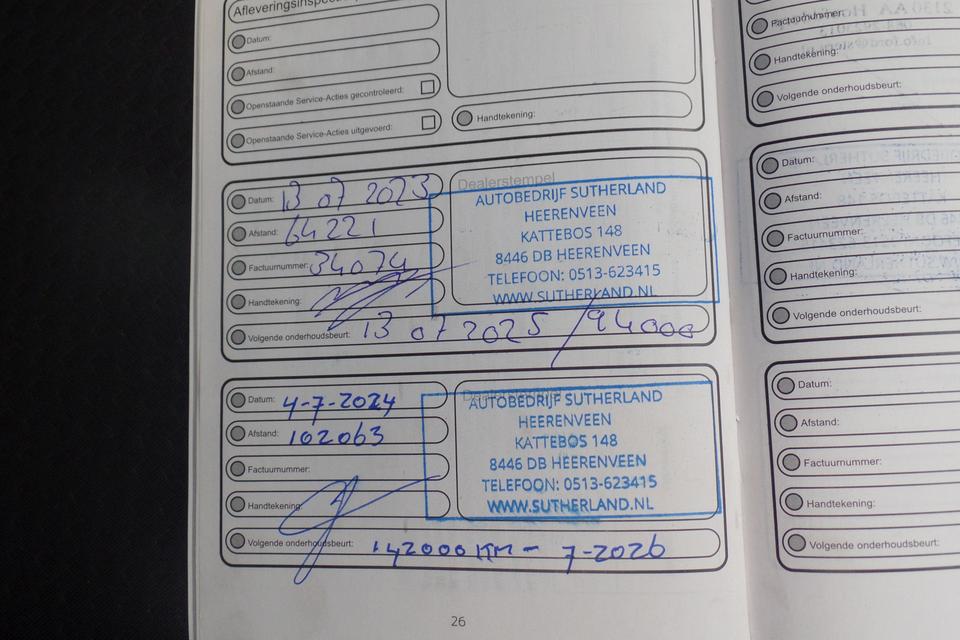 Afleveringsinspec
Datum:
Afstand:
Openstaande Service-Acties gecontroleerd:
Openstaande Service-Acties uitgevoerd:
Handtekening:
Datum: 13 07 2023
Afstand: 64221
Factuurnummer: 34074
Handtekening:
Volgende onderhoudsbeurt: 13 07 2025 / 94000
Dealerstempel
AUTOBEDRIJF SUTHERLAND
HEERENVEEN
KATTEBOS 148
8446 DB HEERENVEEN
TELEFOON: 0513-623415
WWW.SUTHERLAND.NL
Datum: 4-7-2024
Afstand: 102063
Factuurnummer:
Handtekening:
Volgende onderhoudsbeurt: 142000 KM - 7-2026
AUTOBEDRIJF SUTHERLAND
HEERENVEEN
KATTEBOS 148
8446 DB HEERENVEEN
TELEFOON: 0513-623415
WWW.SUTHERLAND.NL
26
Factuurnummer:
Handtekening:
Volgende onderhoudsbeurt:
Datum:
Afstand:
Factuurnummer:
Handtekening:
Volgende onderhoudsbeurt:
Datum:
Afstand:
Factuurnummer:
Handtekening:
Volgende onderhoudsbeurt: